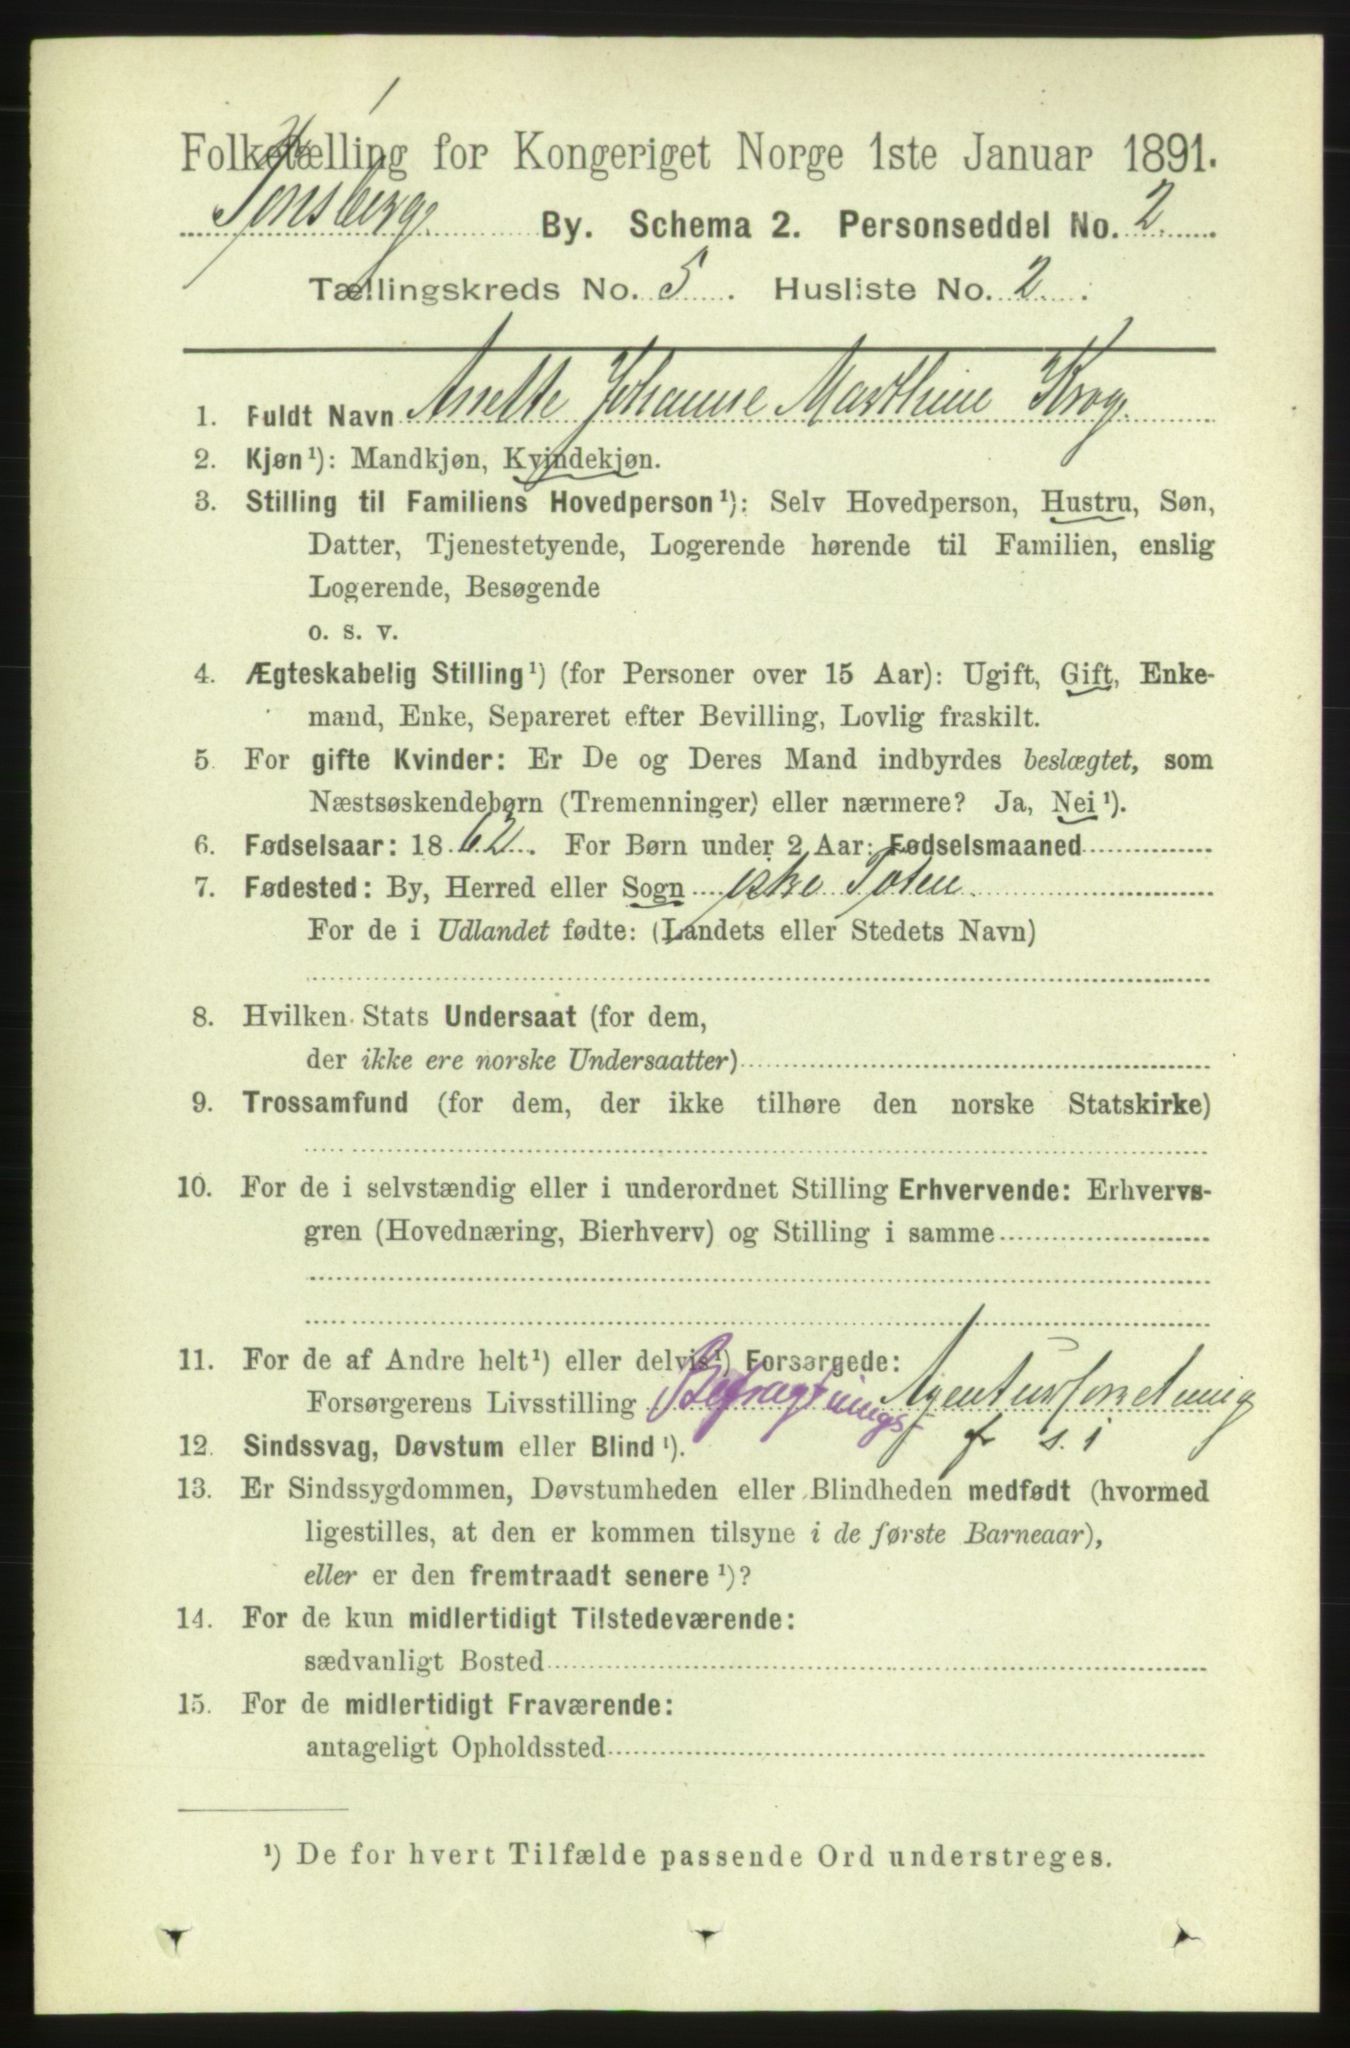 Folketælling for Kongeriget Norge 1ste Januar 1891.
Tønsberg By. Schema 2. Personseddel No. 2
Tællingskreds No. 5. Husliste No. 2.
1. Fuldt Navn Anette Johanne Marthine Krog.
2. Kjøn¹): Mandkjøn, Kvindekjøn.
3. Stilling til Familiens Hovedperson¹): Selv Hovedperson, Hustru, Søn,
Datter, Tjenestetyende, Logerende hørende til Familien, enslig
Logerende, Besøgende
o. s. v.
4. Ægteskabelig Stilling¹) (for Personer over 15 Aar): Ugift, Gift, Enke-
mand, Enke, Separeret efter Bevilling, Lovlig fraskilt.
5. For gifte Kvinder: Er De og Deres Mand indbyrdes beslægtet, som
Næstsøskendebørn (Tremenninger) eller nærmere? Ja, Nei¹).
6. Fødselsaar: 1862. For Børn under 2 Aar: Fødselsmaaned
7. Fødested: By, Herred eller Sogn Toten
For de i Udlandet fødte: (Landets eller Stedets Navn)
8. Hvilken Stats Undersaat (for dem,
der ikke ere norske Undersaatter)
9. Trossamfund (for dem, der ikke tilhøre den norske Statskirke)
10. For de i selvstændig eller i underordnet Stilling Erhvervende: Erhvervs-
gren (Hovednæring, Bierhverv) og Stilling i samme
11. For de af Andre helt¹) eller delvis¹) Forsørgede:
Forsørgerens Livsstilling Befragtnings- Agenturforretning
f s. i
12. Sindssvag, Døvstum eller Blind¹).
13. Er Sindssygdommen, Døvstumheden eller Blindheden medfødt (hvormed
ligestilles, at den er kommen tilsyne i de første Barneaar),
eller er den fremtraadt senere¹)?
14. For de kun midlertidigt Tilstedeværende:
sædvanligt Bosted
15. For de midlertidigt Fraværende:
antageligt Opholdssted
¹) De for hvert Tilfælde passende Ord understreges.